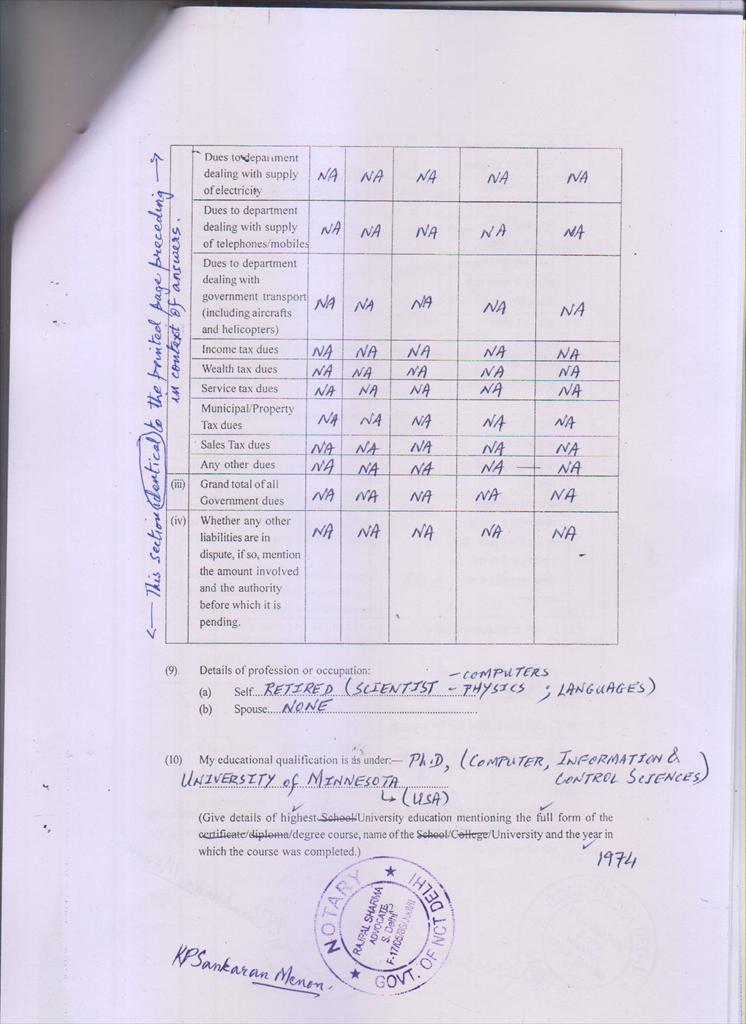 <— This section identical to the printed page preceding —>
in context of answers.
Dues to department
dealing with supply
of electricity
NA NA NA NA NA
Dues to department
dealing with supply
of telephones/mobiles
NA NA NA NA NA
Dues to department
dealing with
government transport
(including aircrafts
and helicopters)
NA NA NA NA NA
Income tax dues NA NA NA NA NA
Wealth tax dues NA NA NA NA NA
Service tax dues NA NA NA NA NA
Municipal/Property
Tax dues
NA NA NA NA NA
Sales Tax dues NA NA NA NA NA
Any other dues NA NA NA NA — NA
(iii) Grand total of all
Government dues
NA NA NA NA NA
(iv) Whether any other
liabilities are in
dispute, if so, mention
the amount involved
and the authority
before which it is
pending.
NA NA NA NA NA
(9) Details of profession or occupation:
– COMPUTERS
(a) Self RETIRED (SCIENTIST – PHYSICS ; LANGUAGES)
(b) Spouse NONE
(10) My educational qualification is as under:— Ph.D, (COMPUTER, INFORMATION &
CONTROL SCIENCES)
UNIVERSITY of MINNESOTA
↳ (USA)
(Give details of highest School/University education mentioning the full form of the
certificate/diploma/degree course, name of the School/College/University and the year in
which the course was completed.)
1974
NOTARY
RAJPAL SHARMA
ADVOCATE
S. Delhi
GOVT. OF NCT DELHI
KPSankaran Menon.